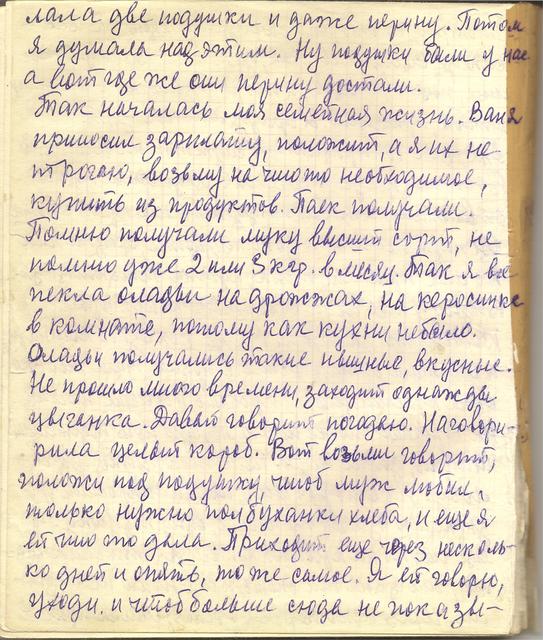 лала две подушки и даже перину. Потом
я думала над этим. Ну подушки были у нас
а вот где же они перину достали.
Так началась моя семейная жизнь. Ваня
приносил зарплату, положит, а я их не
трогаю, возьму на что то необходимое,
купить из продуктов. Паек получали.
Помню получали муку высший сорт, не
помню уже 2 или 3 кгр. в месяц. Так я все
пекла оладьи на дрожжах, на керосинке
в комнате, потому как кухни небыло.
Оладьи получались такие пышные, вкусные.
Не прошло много времени, заходит однажды
цыганка. Давай говорит погадаю. Наговори-
рила целый короб. Вот возьми говорит,
положи под подушку чтоб муж любил,
только нужно полбуханки хлеба, и еще я
ей что то дала. Приходит еще через несколь-
ко дней и опять, то же самое. Я ей говорю,
уходи. и чтоб больше сюда не показы-